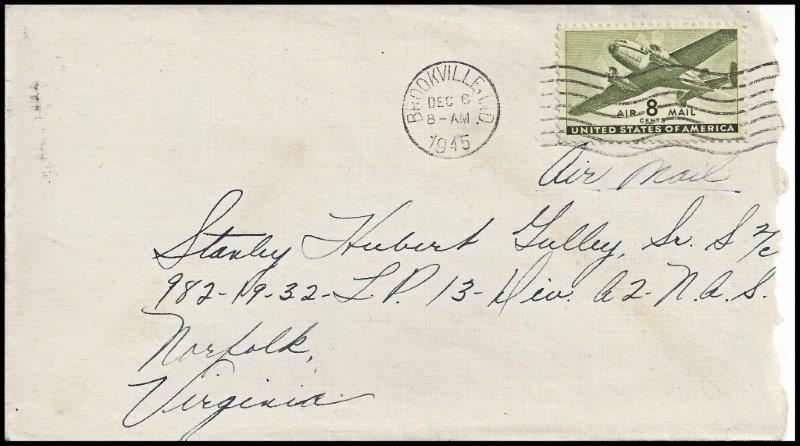 BROOKVILLE, IND.
DEC 6
8-AM
1945
AIR 8 MAIL
CENTS
UNITED STATES OF AMERICA
Air Mail
Stanley Hubert Gulley, Sr. S 2/c
982-19-32-L.P. 13-Div. A2-N.A.S.
Norfolk,
Virginia